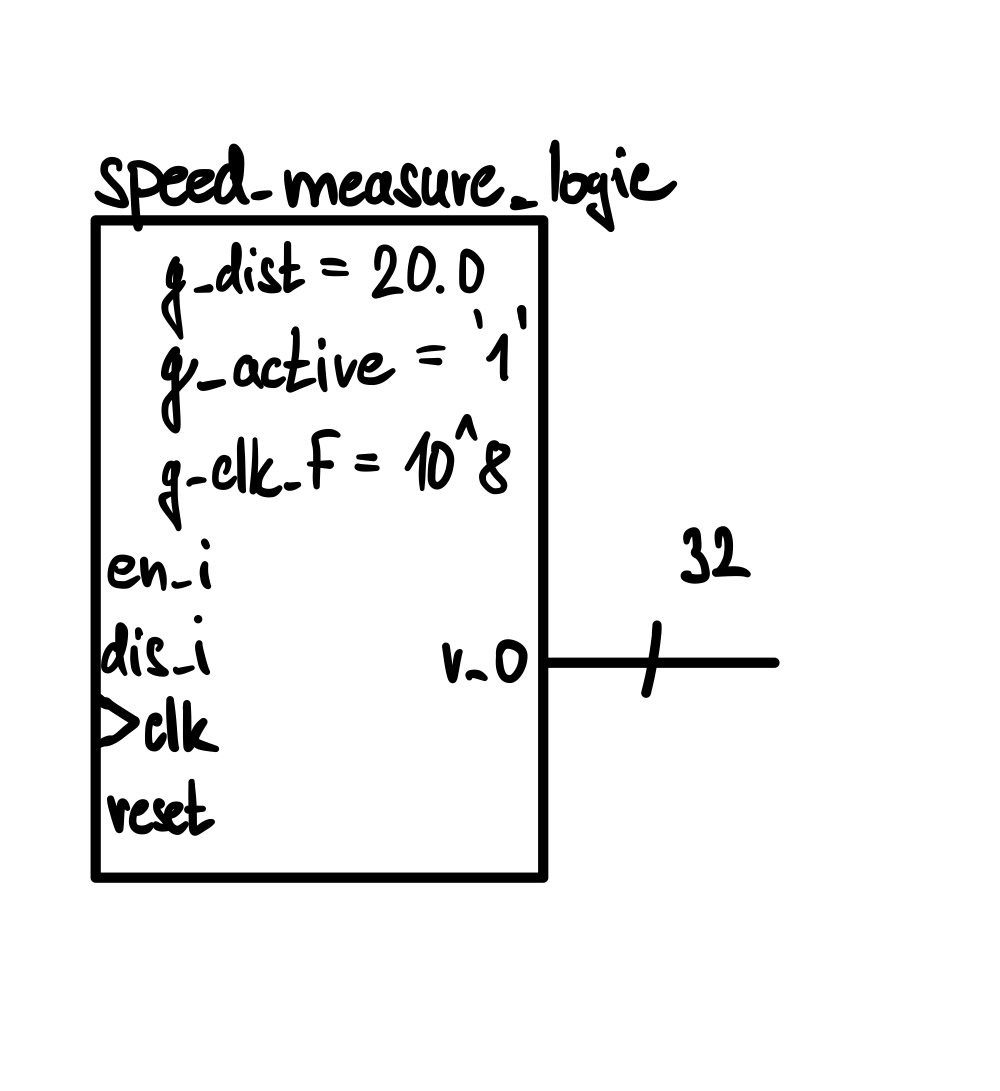 speed_measure_logic
g_dist = 20.0
g_active = '1'
g_clk_F = 10^8
en_i
dis_i
32
v_0
>clk
reset